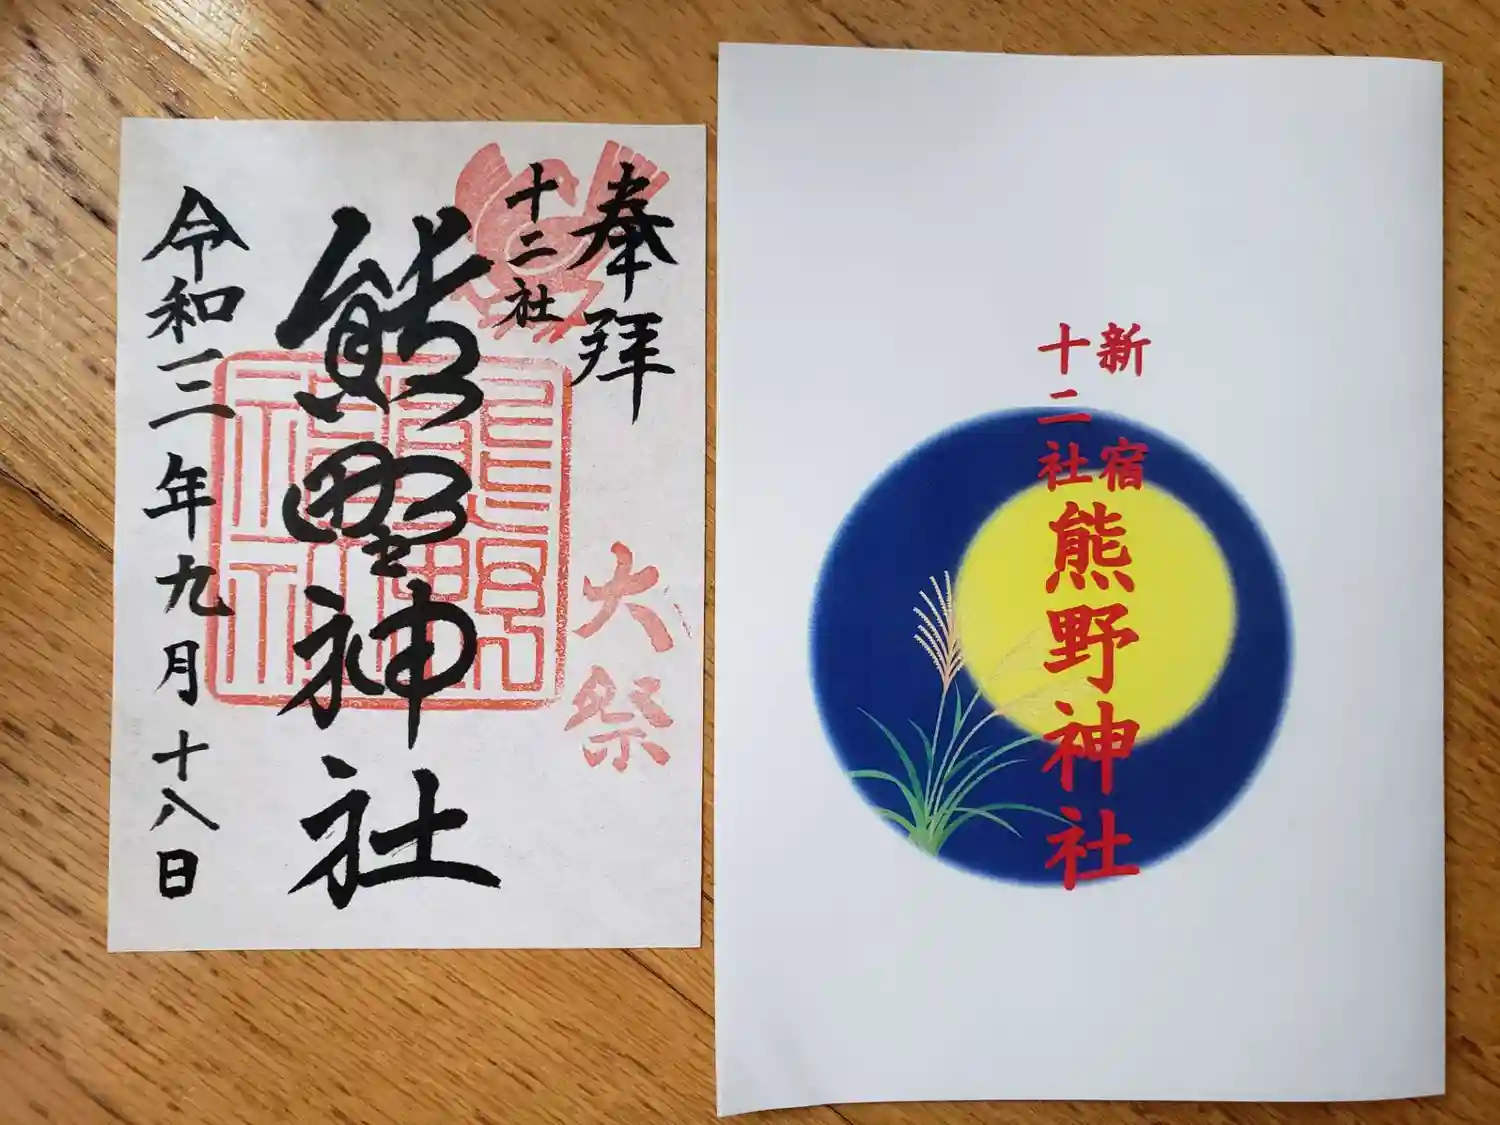 奉拝
大祭
十二社
熊野神社
令和三年九月十八日
新宿
十二社
熊野神社